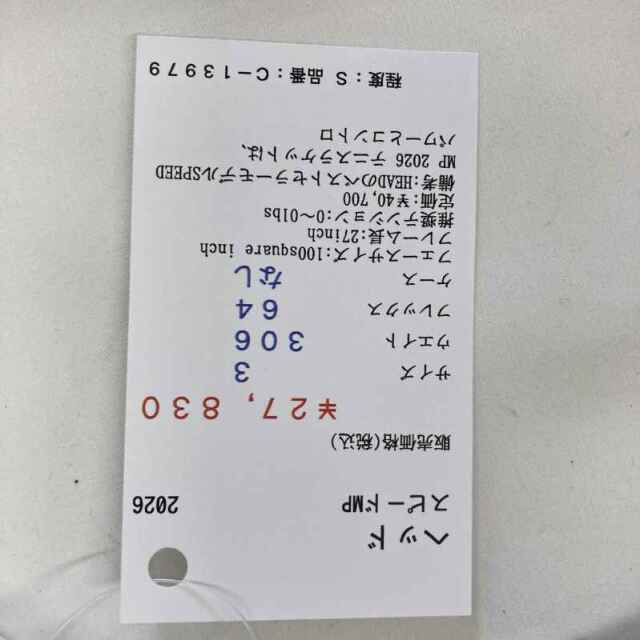 ヘッド
スピードMP 2026
販売価格(税込)
¥27,830
サイズ 3
ウエイト 306
フレックス 64
ケース なし
フェースサイズ:100square inch
フレーム長:27inch
推奨テンション:0〜0lbs
定価:¥40,700
備考:HEADのベストセラーモデルSPEED
MP 2026 テニスラケットは、
パワーとコントロ
程度:S 品番:C-13979